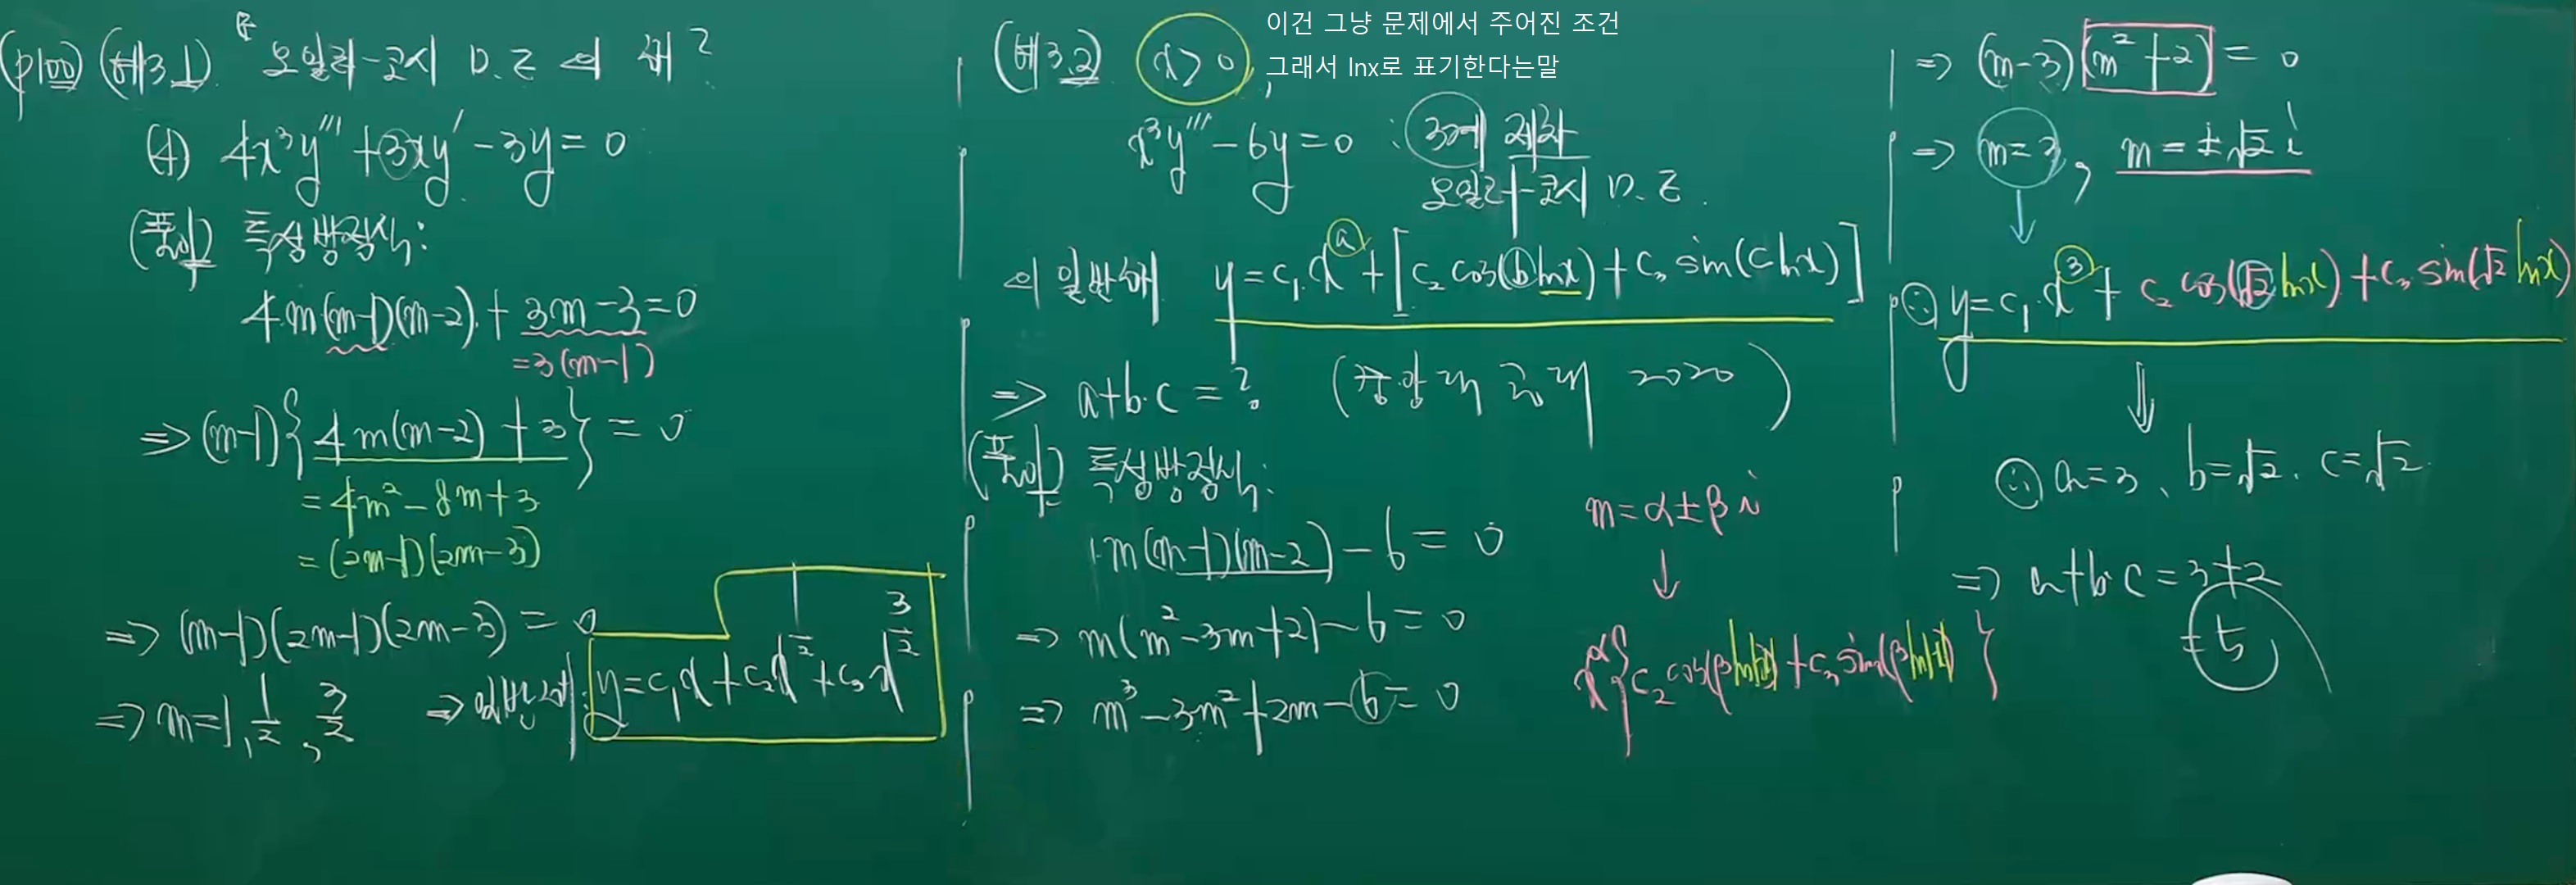 (p100) (예3.1) 오일러-코시 D.E 의 해?
(4) 4x³y''' + 3xy' - 3y = 0
(풀이) 특성방정식:
4·m(m-1)(m-2) + 3m - 3 = 0
= 3(m-1)
⇒ (m-1){4m(m-2) + 3} = 0
= 4m² - 8m + 3
= (2m-1)(2m-3)
⇒ (m-1)(2m-1)(2m-3) = 0
⇒ m = 1, 1/2, 3/2 ⇒ 일반해: y = c₁x + c₂x^(1/2) + c₃x^(3/2)
(예3.2) x > 0,
이건 그냥 문제에서 주어진 조건
그래서 lnx로 표기한다는말
x³y''' - 6y = 0 : 3계 제차
오일러-코시 D.E.
의 일반해 y = c₁·x^a + [c₂ cos(b lnx) + c₃ sin(c lnx)]
⇒ a+b·c = ? (중앙대 공대 2020)
(풀이) 특성방정식:
m(m-1)(m-2) - 6 = 0
⇒ m(m² - 3m + 2) - 6 = 0
⇒ m³ - 3m² + 2m - 6 = 0
m = α ± β i
↓
x^α {c₂ cos(β ln|x|) + c₃ sin(β ln|x|)}
⇒ (m-3)(m² + 2) = 0
⇒ m = 3, m = ±√2 i
↓
∴ y = c₁·x³ + c₂ cos(√2 lnx) + c₃ sin(√2 lnx)
⇓
∴ a = 3, b = √2, c = √2
⇒ a+b·c = 3+2
= 5